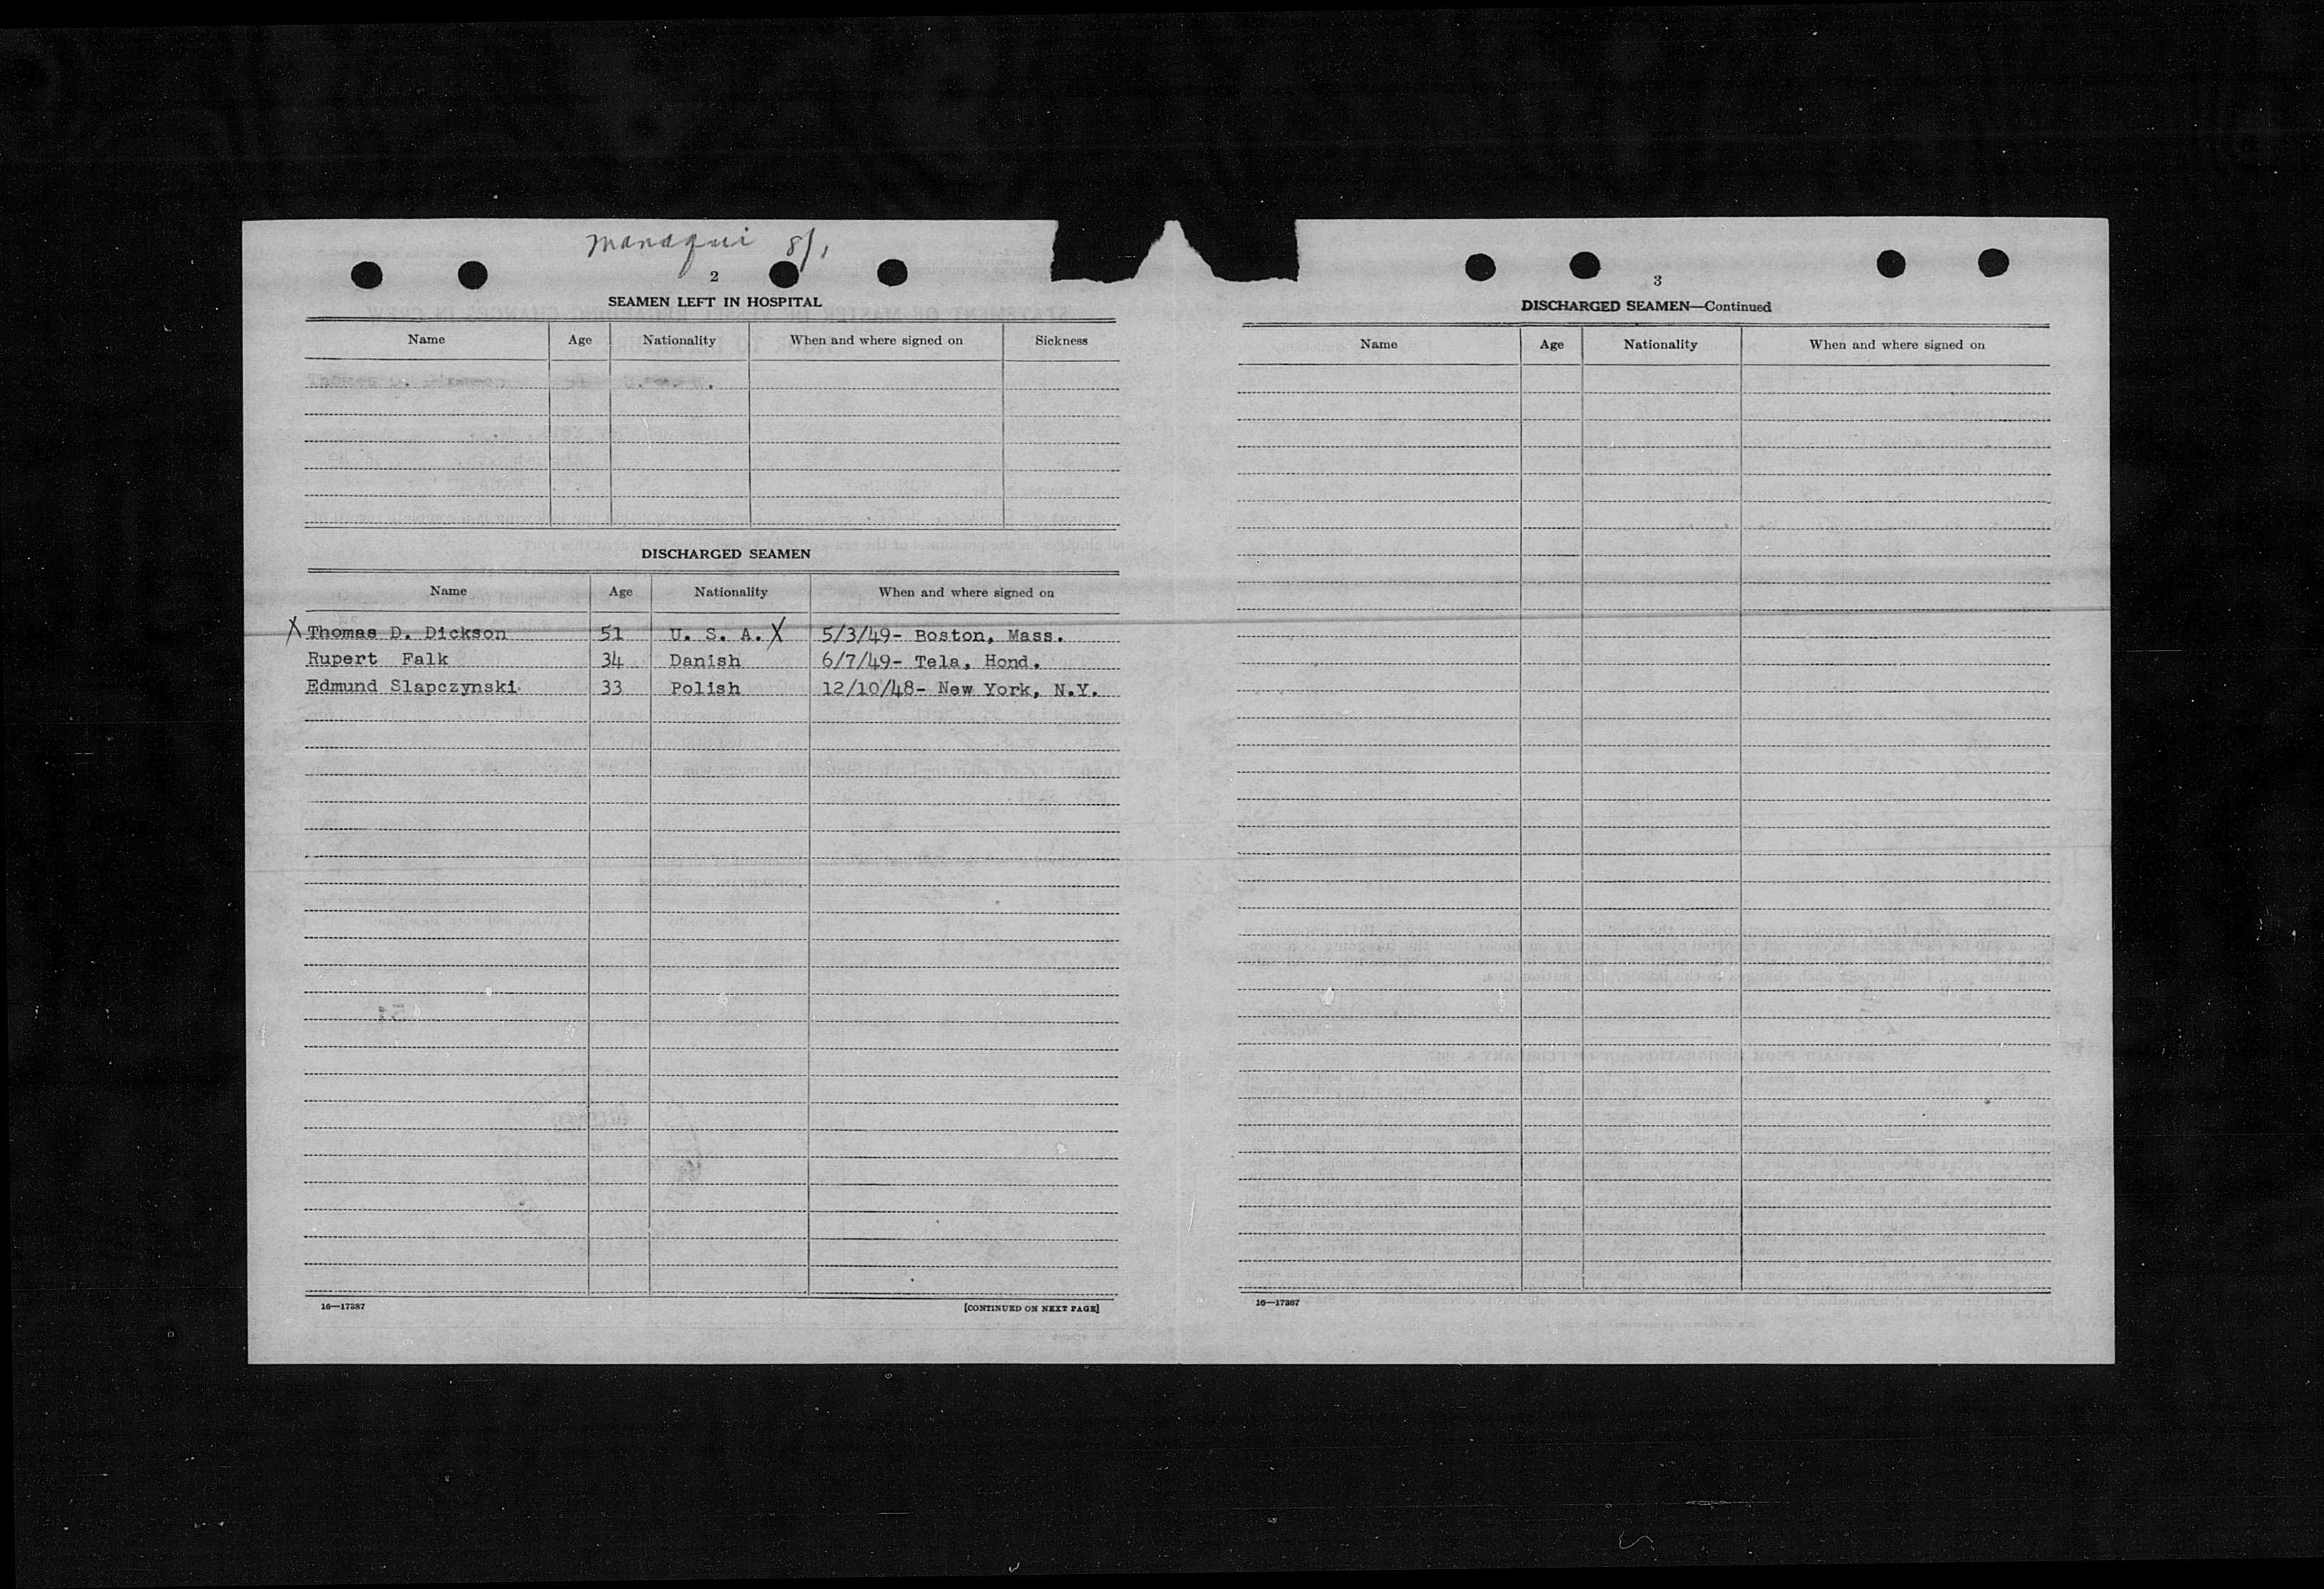 Managui 8/1
2
SEAMEN LEFT IN HOSPITAL
Name Age Nationality When and where signed on Sickness
DISCHARGED SEAMEN
Name Age Nationality When and where signed on
X Thomas D. Dickson 51 U. S. A. X 5/3/49- Boston, Mass.
Rupert Falk 34 Danish 6/7/49- Tela, Hond.
Edmund Slapczynski 33 Polish 12/10/48- New York, N.Y.
16—17387 [CONTINUED ON NEXT PAGE]
3
DISCHARGED SEAMEN—Continued
Name Age Nationality When and where signed on
16—17387